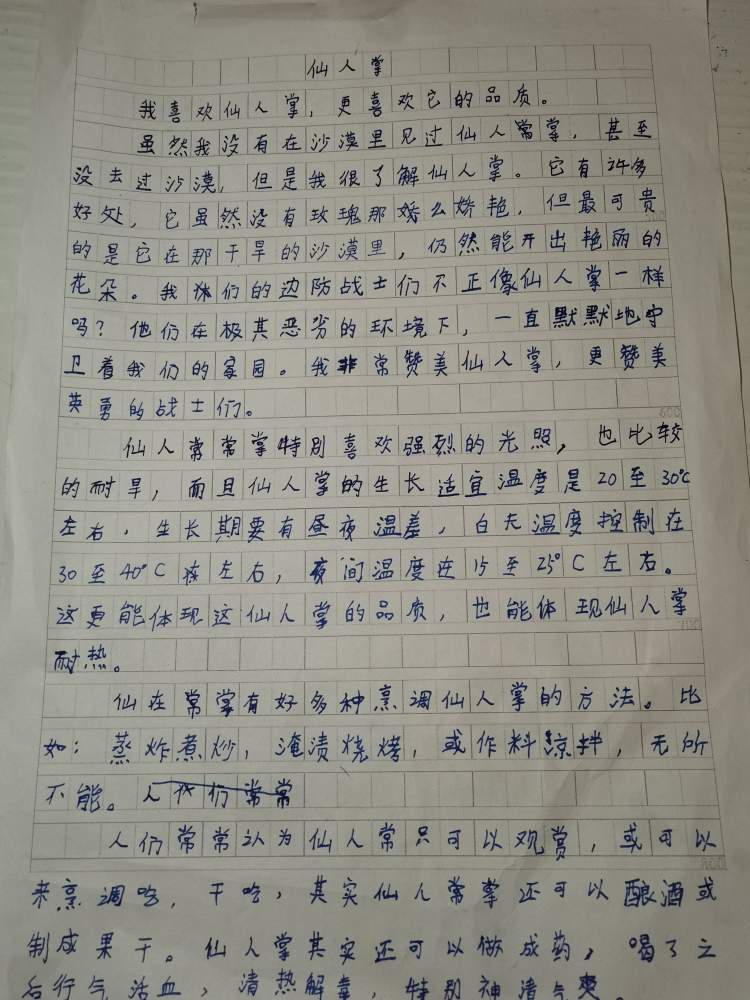 仙人掌
我喜欢仙人掌，更喜欢它的品质。
虽然我没有在沙漠里见过仙人常掌，甚至
没去过沙漠，但是我很了解仙人掌。它有许多
好处，它虽然没有玫瑰那娇么娇艳，但最可贵
的是它在那干旱的沙漠里，仍然能开出艳丽的
花朵。我们的边防战士们不正像仙人掌一样
吗？他们在极其恶劣的环境下，一直默默地守
卫着我们的家园。我非常赞美仙人掌，更赞美
英勇的战士们。
600
仙人常常掌特别喜欢强烈的光照，也比较
的耐旱，而且仙人掌的生长适宜温度是20至30℃
左右，生长期要有昼夜温差，白天温度控制在
30至40°C左右，夜间温度在15至25°C左右。
这更能体现这仙人掌的品质，也能体现仙人掌
700
耐热。
仙在常掌有好多种烹调仙人掌的方法。比
如：蒸炸煮炒，淹渍烧烤，或作料凉拌，无所
不能。人们常常
人们常常认为仙人常只可以观赏，或可以
800
来烹调吃，干吃，其实仙人常掌还可以酿酒或
制成果干。仙人掌其实还可以做成药，喝了之
后行气活血，清热解毒，特别神清气爽。